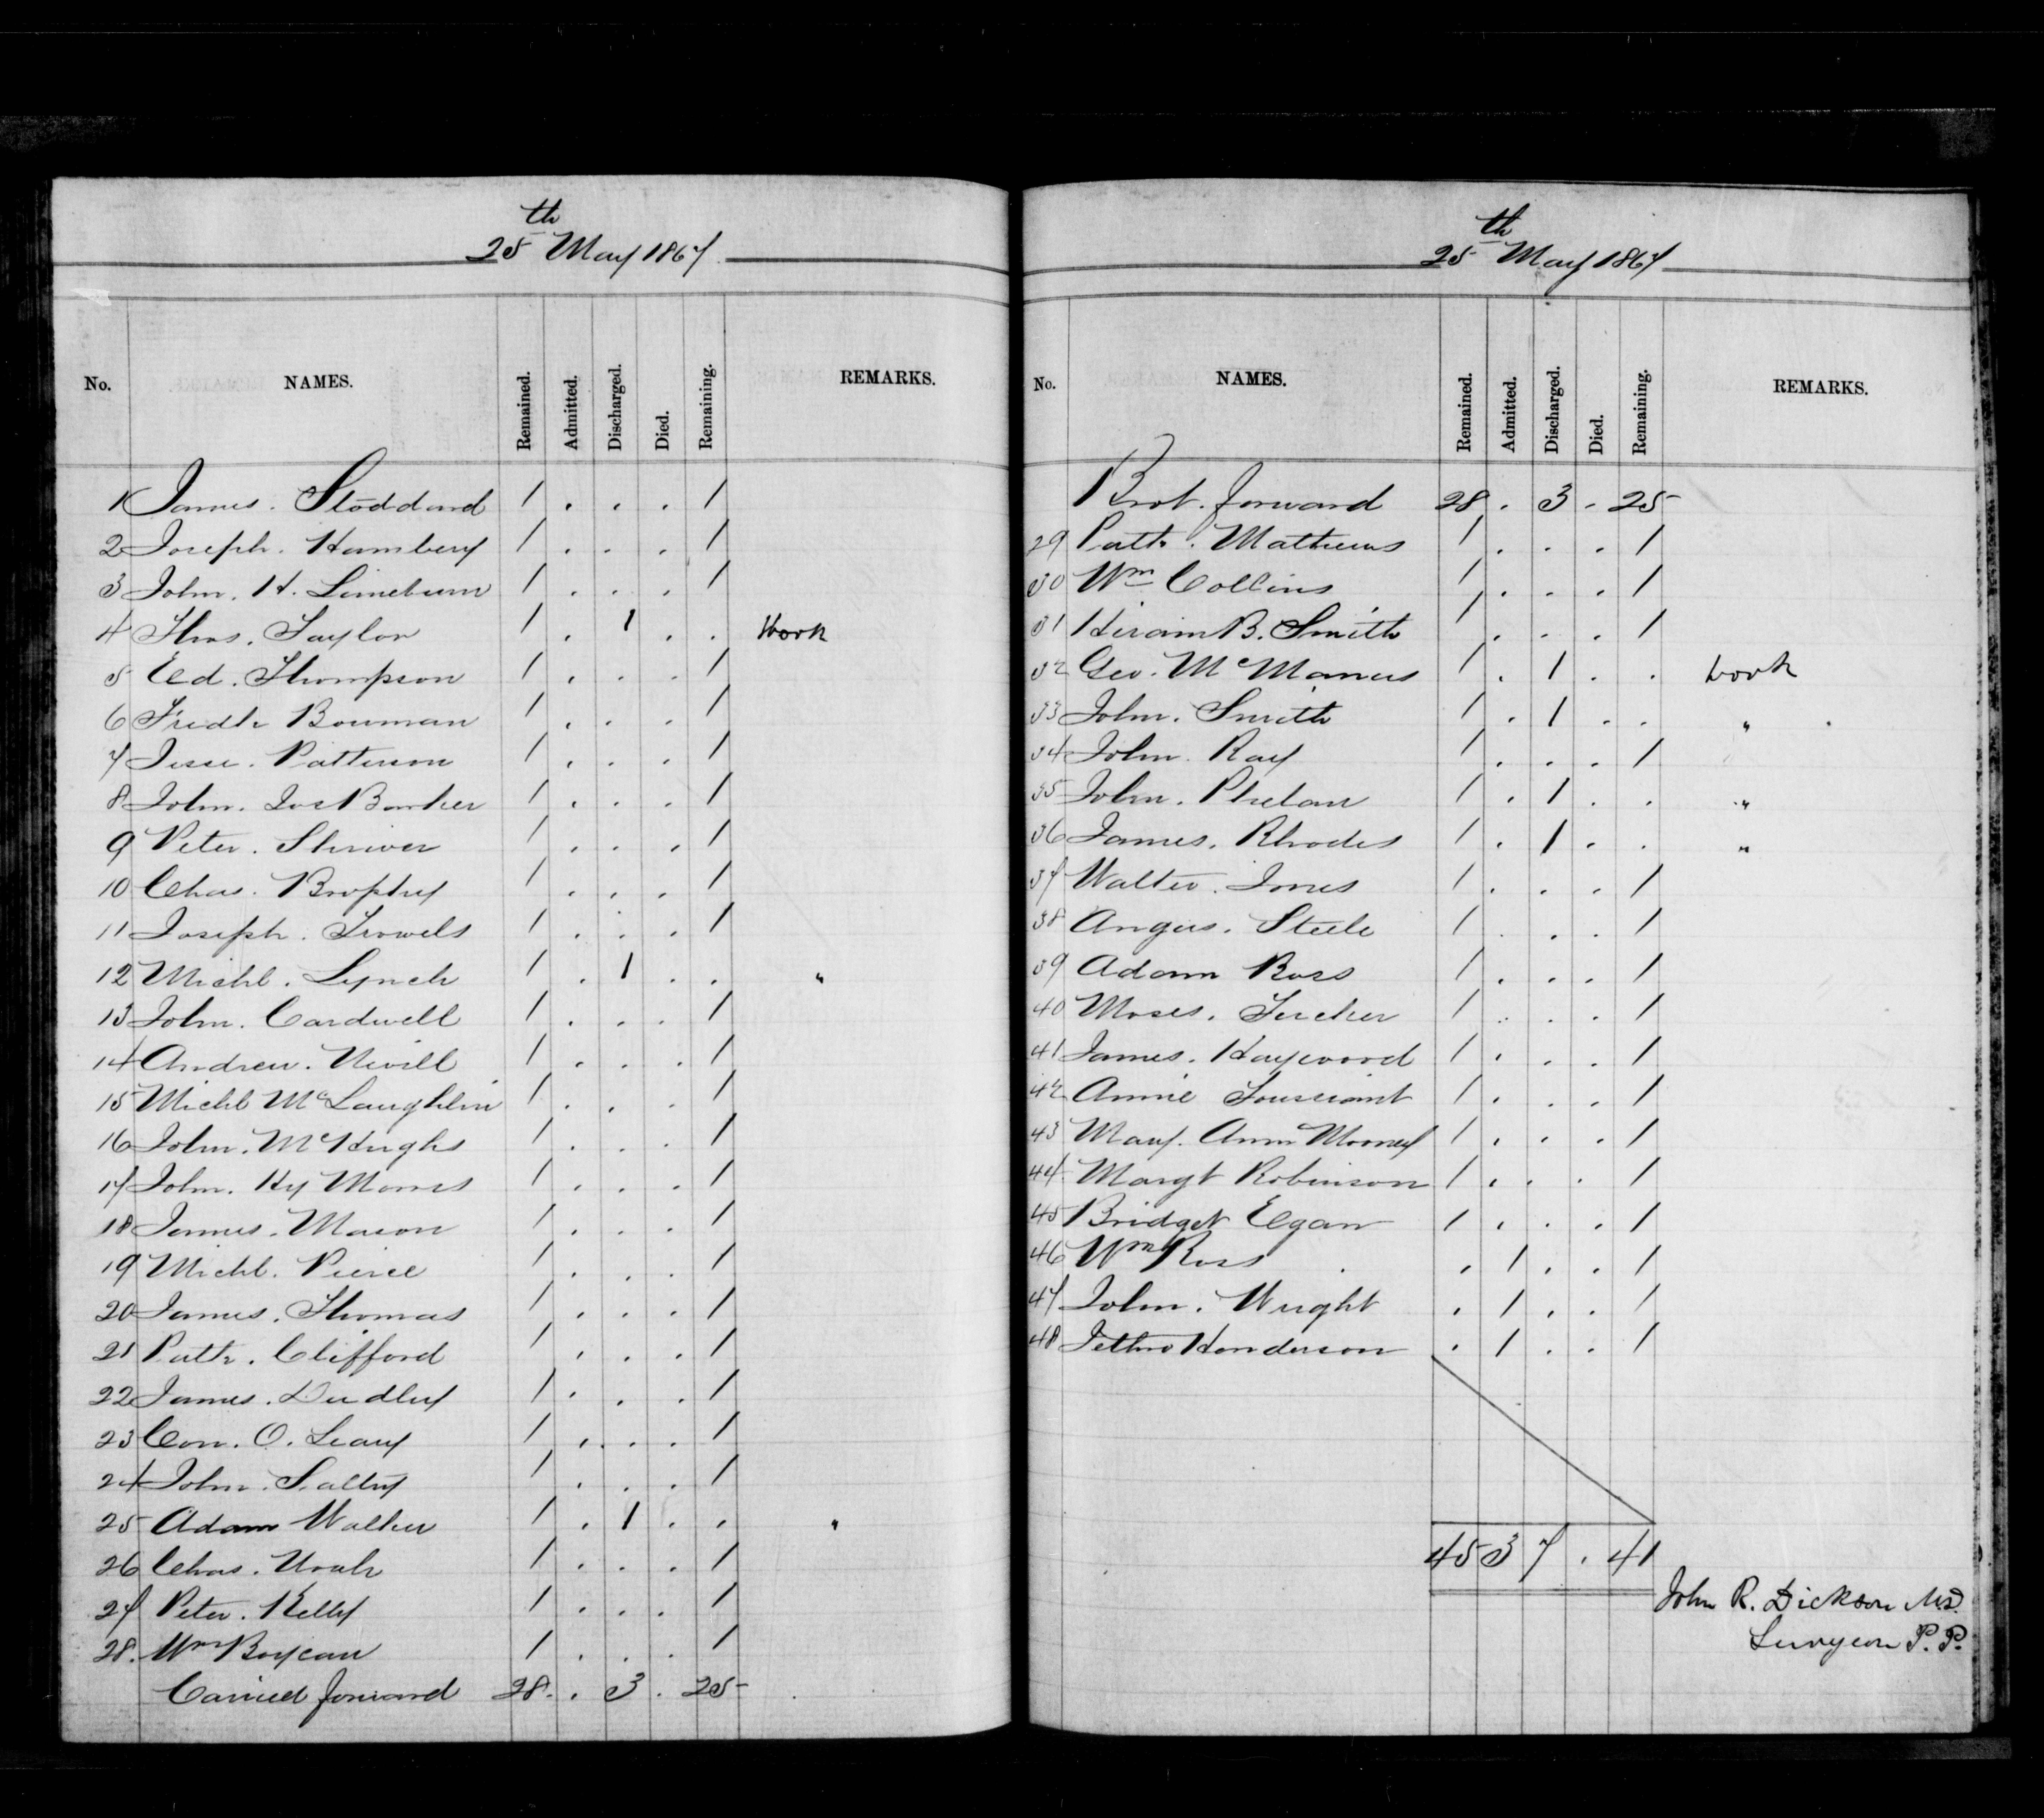 25th May 1867
No. NAMES. Remained. Admitted. Discharged. Died. Remaining. REMARKS.
1 James. Stoddard 1 . . . 1
2 Joseph. Hambery 1 . . . 1
3 John. H. Limeburn 1 . . . 1
4 Thos. Taylor 1 . 1 . . Work
5 Ed. Thompson 1 . . . 1
6 Fredk Bowman 1 . . . 1
7 Jesse. Patterson 1 . . . 1
8 John. Jos Barker 1 . . . 1
9 Peter. Shriver 1 . . . 1
10 Chas. Brophy 1 . . . 1
11 Joseph. Trowels 1 . . . 1
12 Michl. Lynch 1 . 1 . . "
13 John. Cardwell 1 . . . 1
14 Andrew. Nevill 1 . . . 1
15 Michl McLaughlin 1 . . . 1
16 John. McHughs 1 . . . 1
17 John. Hy Morris 1 . . . 1
18 James. Mason 1 . . . 1
19 Michl. Pierce 1 . . . 1
20 James. Thomas 1 . . . 1
21 Patk. Clifford 1 . . . 1
22 James. Dudley 1 . . . 1
23 Con. O. Leary 1 . . . 1
24 John. Saltry 1 . . . 1
25 Adam Walker 1 . 1 . . "
26 Chas. 1 . . . 1
27 Peter. Kelly 1 . . . 1
28. Wm 1 . . . 1
Carried forward 28 . 3 . 25
25th May 1867
No. NAMES. Remained. Admitted. Discharged. Died. Remaining. REMARKS.
Brot. forward 28 . 3 . 25
29 Patk. Mathews 1 . . . 1
30 Wm Collins 1 . . . 1
31 Hiram B. Smith 1 . . . 1
32 Geo. McManus 1 . 1 . . Work
33 John. Smith 1 . 1 . . "
34 John. Ray 1 . . . 1
35 John. Phelan 1 . 1 . . "
36 James. Rhodes 1 . 1 . . "
37 Walter. Jones 1 . . . 1
38 Angus. Steele 1 . . . 1
39 Adam Ross 1 . . . 1
40 Moses. Tucker 1 . . . 1
41 James. Haywood 1 . . . 1
42 Annie Toussiant 1 . . . 1
43 Mary. Ann Mooney 1 . . . 1
44 Margt Robinson 1 . . . 1
45 Bridget Egan 1 . . . 1
46 Wm Ross . 1 . . 1
47 John. Wright . 1 . . 1
48 Jethro Henderson . 1 . . 1
45 3 7 . 41
John R. Dickson M.D.
Surgeon P. P.